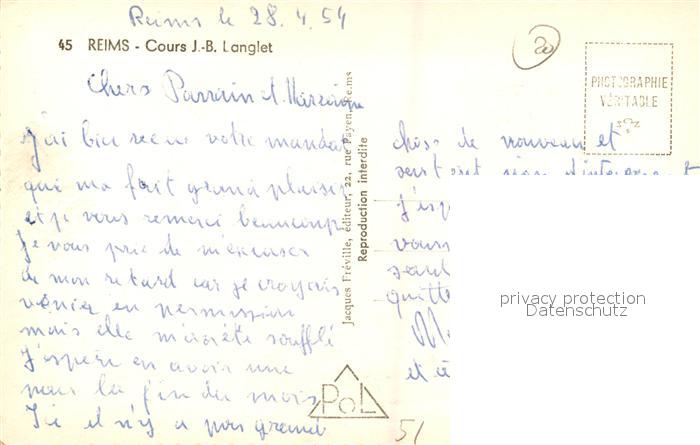 Reims le 28.4.54
45 REIMS - Cours J.-B. Langlet
20
PHOTOGRAPHIE
VÉRITABLE
Chers Parrain et Marraine
J'ai bien recue votre mandat
qui ma fait grand plaisir
et je vous remerci beaucoup
Je vous prie de m'excuser
de mon retard car je croyais
venir en permission
mais elle m'a été soufflé
J'espère en avoir une
pour la fin du mois
Ici il n'y a pas grand
Jacques Fréville, éditeur, 22, rue Payen, Reims
Reproduction interdite
chose de nouveau et
J'esp
vous
quitte
et
POL
51
privacy protection
Datenschutz